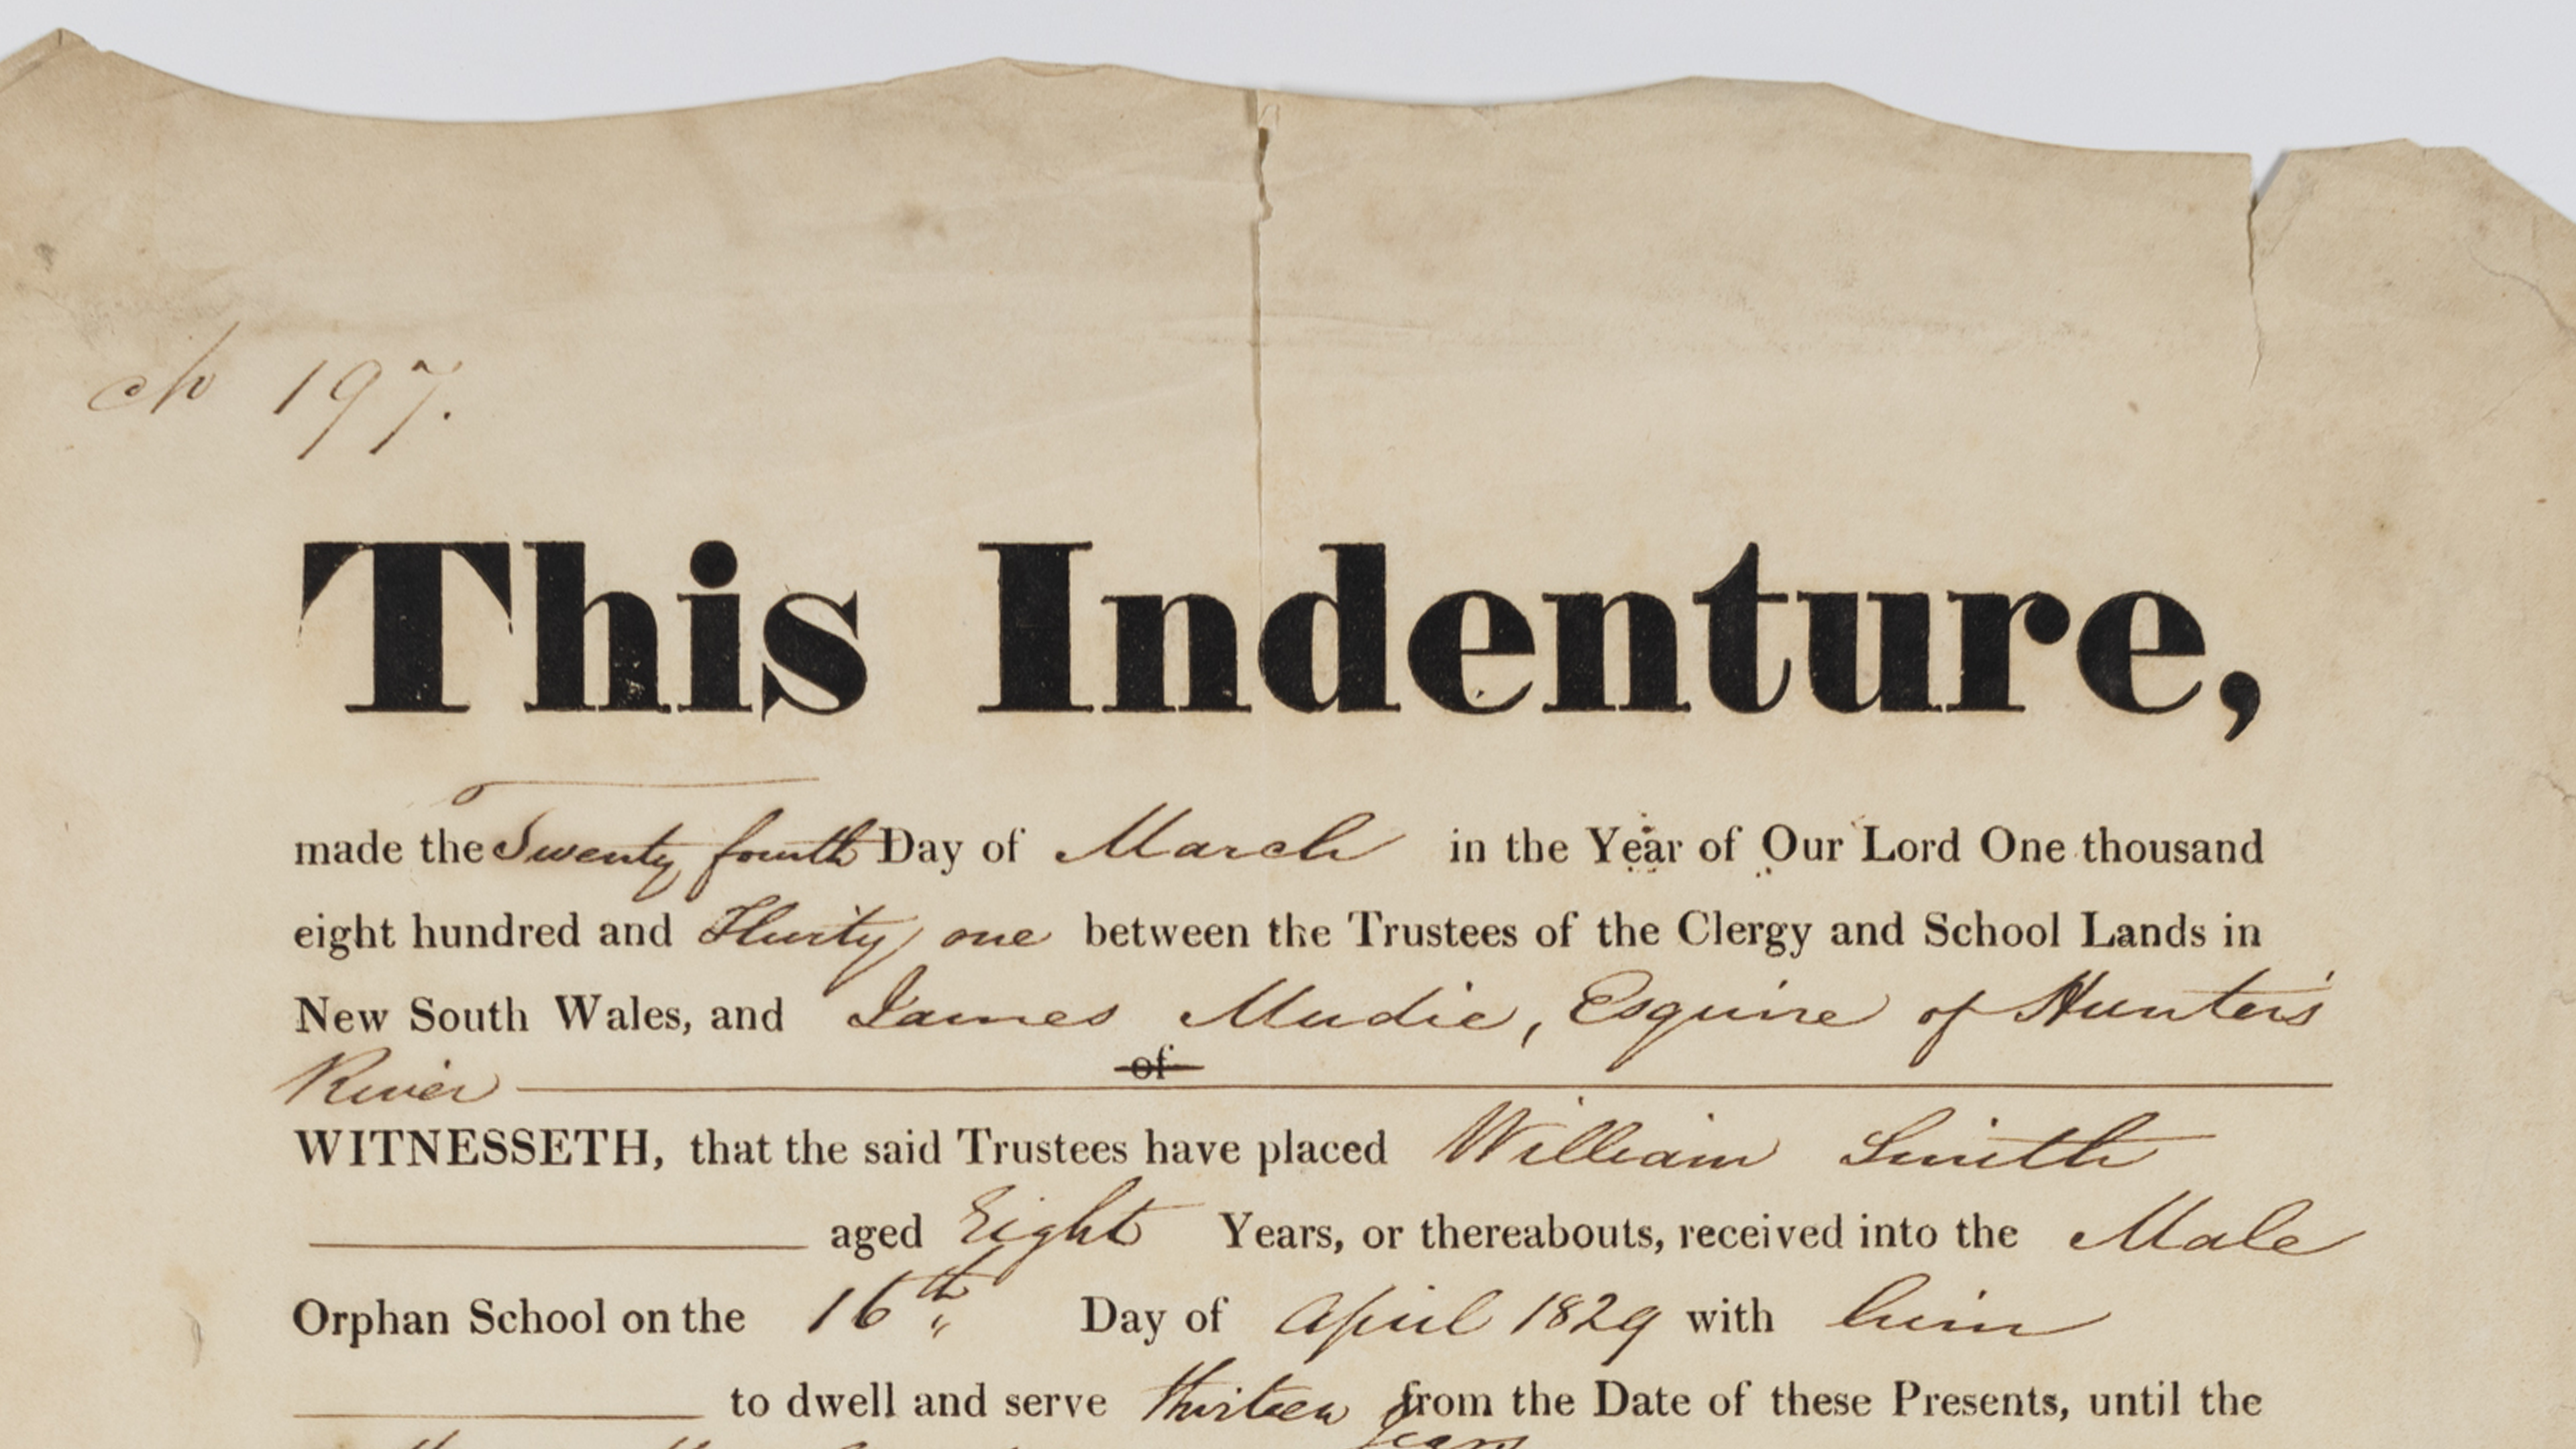 ch 197.
This Indenture,
made the Twenty fourth Day of March in the Year of Our Lord One thousand
eight hundred and Thirty one between the Trustees of the Clergy and School Lands in
New South Wales, and James Mudie, Esquire of Hunter's
River of
WITNESSETH, that the said Trustees have placed William Smith
aged Eight Years, or thereabouts, received into the Male
Orphan School on the 16th Day of April 1829 with him
to dwell and serve thirteen from the Date of these Presents, until the
years